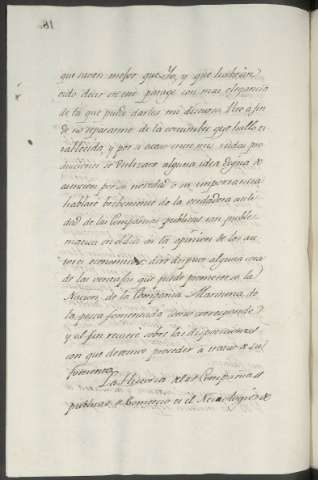 18.
que saven mejor que Yo, y que habrán
oido decir en este parage con mas elegancia
de la que pude darles mi discurso. Pero a fin
de no separarme de la costumbre que hallo es
tablecida, y por si acaso entre mis rudas pro
ducciones se deslizare alguna idea digna de
atencion por su novedad o su importancia
hablaré brebemente de la verdadera utili
dad de las Compañias publicas tan proble
matica en el dia en la opinion de los au
tores economicos: diré despues alguna cosa
de las ventajas que puede prometerse la
Nacion de la Compañia Maritima, de
la pesca fomentada como corresponde;
y al fin recaeré sobre las disposiciones
con que devemos proceder a tratar de su
fomento.
La Historia de las Compañias
publicas de Comercio es el Necrologio de